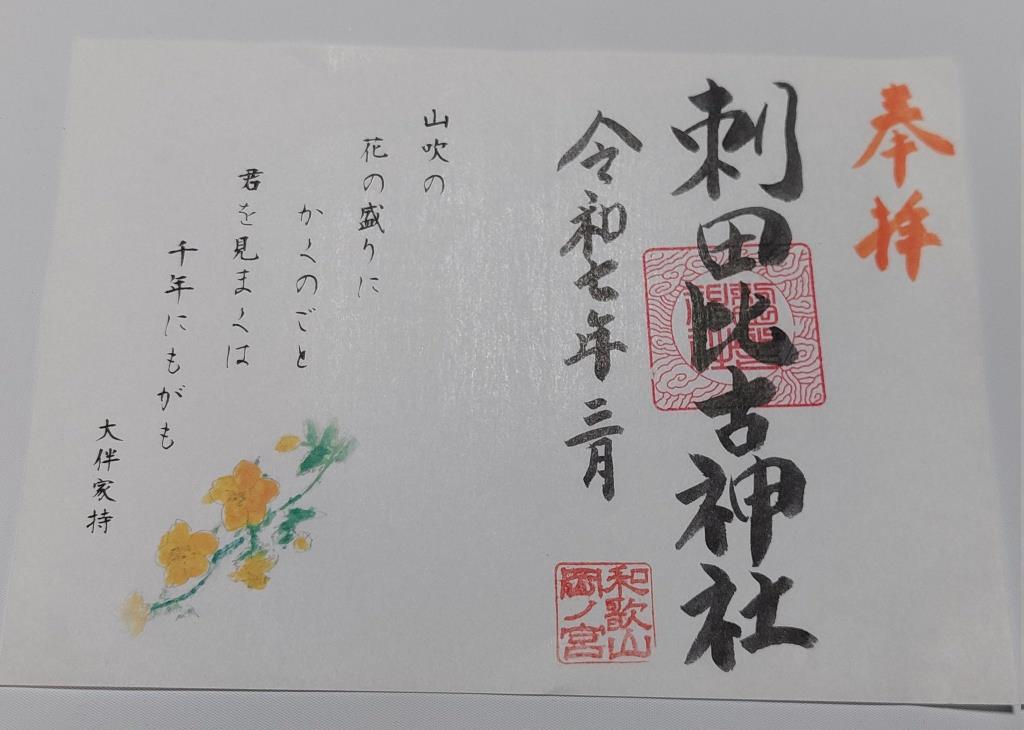 奉拝
刺田比古神社
令和七年三月
和歌山
岡ノ宮
山吹の
花の盛りに
かくのごと
君を見まくは
千年にもがも
大伴家持